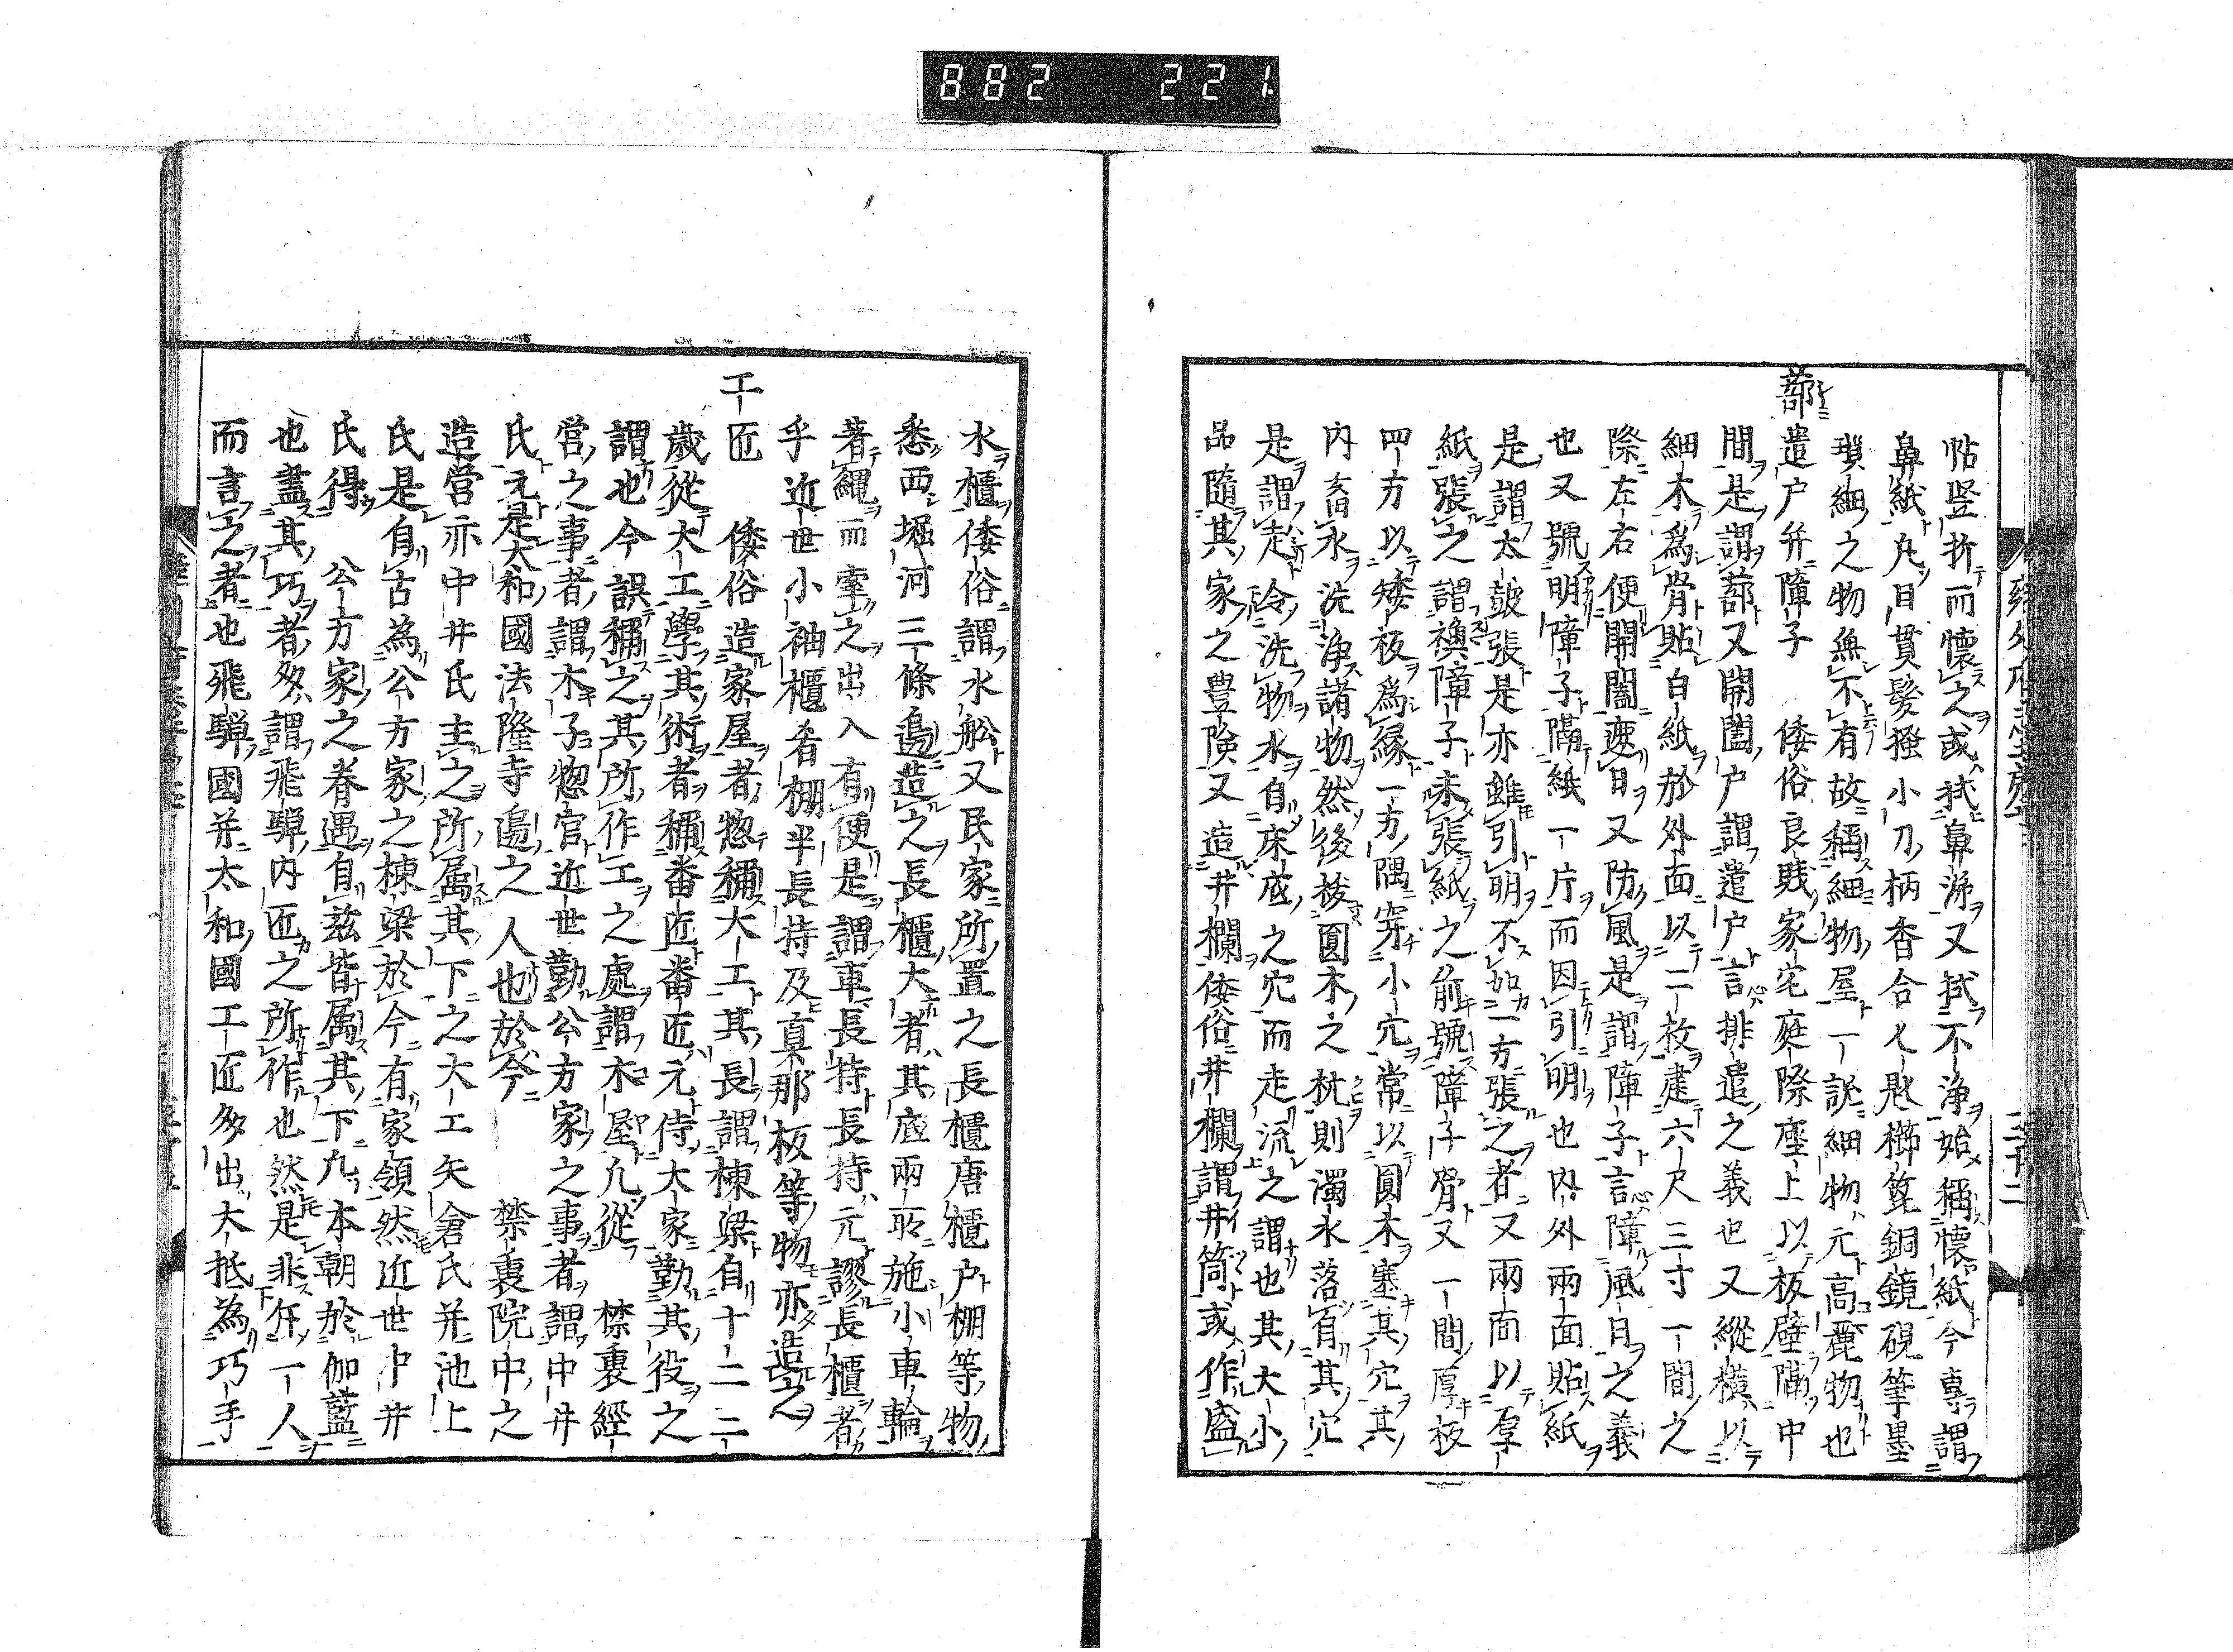 882 221
帖竖折而懷之或拭鼻涕又拭不淨始稱懷紙今專謂
鼻紙凡目貫髮搔小刀柄香合匕匙櫛篦銅鏡硯筆墨
瑣細之物無不有故稱細物屋一說細物元高麗物也
蔀遣戶并障子 倭俗良賤家宅庭際座上以板壁隔中
間是謂蔀又開闔戶謂遣戶言排遣之義也又縱橫以
細木爲骨貼白紙於外面以二枚建六尺三寸一間之
際左右便開闔遮日又防風是謂障子言障風日之義
也又號明障子隔紙一片而因引明也內外兩面貼紙
是謂太皷張是亦雖引明不如一方張之者又兩面以厚
紙張之謂襖障子未張紙之前號障子骨又一間厚板
四方以矮板爲緣一方隅穿小穴常以圓木塞其穴其
內畜水洗淨諸物然後拔圓木之杭則濁水落自其穴
是謂走冷洗物水自床底之穴而走流之謂也其大小
品隨其家之豊険又造井欄倭俗井欄謂井筒或作盛
水櫃倭俗謂水舩又民家所置之長櫃唐櫃戶棚等物
悉西堀河三條邊造之長櫃大者其底兩所施小車輪
著繩而牽之出入有便是謂車長持長持元謬長櫃者
乎近世小袖櫃肴棚半長持及真那板等物亦造之
工匠 倭俗造家屋者惣稱大工其長謂棟梁自十二二
歲從大工學其術者稱番匠番匠元侍大家勤其役之
謂也今誤稱之其所作工之處謂木屋凡從 禁裏經
営之事者謂木子惣官近世勤公方家之事者謂中井
氏元是太和國法隆寺邊之人也於今 禁裏院中之
造営亦中井氏主之所属其下之大工矢倉氏并池上
氏是自古為公方家之棟梁於今有家領然近世中井
氏得 公方家之眷遇自茲皆属其下凡本朝於伽藍
也盡其巧者多謂飛騨內匠之所作也然是非斥一人
而言之者也飛騨國并太和國工匠多出大抵為巧手